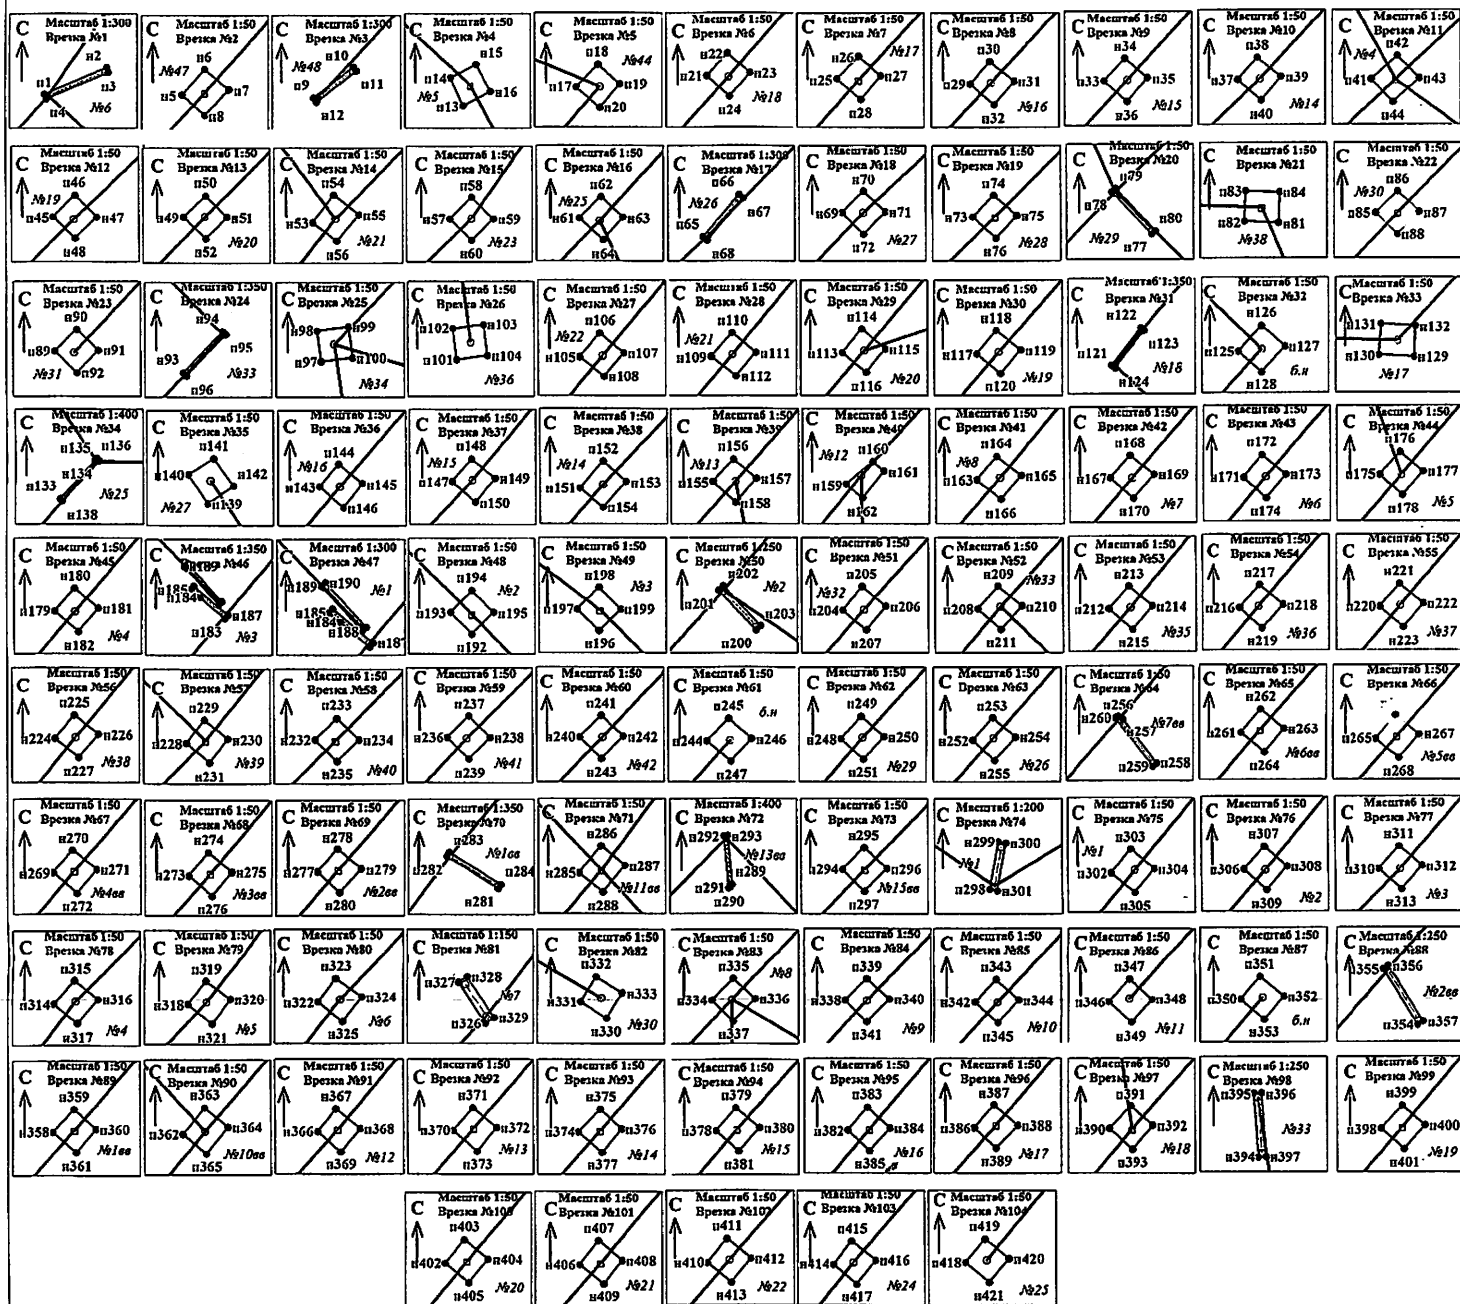 С Масштаб 1:300
Врезка №1
н2
п1 п3
п4 №6
С Масштаб 1:50
Врезка №2
п6
№47
п5 п7
п8
С Масштаб 1:300
Врезка №3
н10
№48
п9 п11
н12
С Масштаб 1:50
Врезка №4
п15
п14
№5 п16
п13
С Масштаб 1:50
Врезка №5
п18 №44
п17 п19
п20
С Масштаб 1:50
Врезка №6
н22
п21 п23
п24 №18
С Масштаб 1:50
Врезка №7
п26 №17
п25 п27
п28
С Масштаб 1:50
Врезка №8
п30
п29 п31
п32 №16
С Масштаб 1:50
Врезка №9
п34
п33 п35
н36 №15
С Масштаб 1:50
Врезка №10
п38
н37 п39
н40 №14
С Масштаб 1:50
Врезка №11
п42
№4
п41 п43
п44
С Масштаб 1:50
Врезка №12
п46
№19
п45 н47
п48
С Масштаб 1:50
Врезка №13
п50
п49 п51
п52 №20
С Масштаб 1:50
Врезка №14
п54
н53 п55
п56 №21
С Масштаб 1:50
Врезка №15
п58
н57 п59
п60 №23
С Масштаб 1:50
Врезка №16
п62
№25
н61 н63
н64
С Масштаб 1:300
Врезка №17
п66
№26
п65 п67
п68
С Масштаб 1:50
Врезка №18
н70
н69 н71
п72 №27
С Масштаб 1:50
Врезка №19
п74
н73 п75
н76 №28
С Масштаб 1:50
Врезка №20
п79
п78 п80
№29 п77
С Масштаб 1:50
Врезка №21
п83 п84
п82 п81
№38
С Масштаб 1:50
Врезка №22
п86
№30
п85 п87
п88
С Масштаб 1:50
Врезка №23
п90
п89 п91
№31 п92
С Масштаб 1:350
Врезка №24
п94
п93 п95
п96 №33
С Масштаб 1:50
Врезка №25
н98 п99
п97 п100
№34
С Масштаб 1:50
Врезка №26
п102 н103
п101 п104
№36
С Масштаб 1:50
Врезка №27
п106
№22
н105 п107
н108
С Масштаб 1:50
Врезка №28
п110
№21
н109 п111
н112
С Масштаб 1:50
Врезка №29
п114
п113 н115
п116 №20
С Масштаб 1:50
Врезка №30
п118
н117 п119
п120 №19
С Масштаб 1:350
Врезка №31
н122
п121 п123
н124 №18
С Масштаб 1:50
Врезка №32
п126
п125 п127
н128 б.н
С Масштаб 1:50
Врезка №33
п131 п132
п130 н129
№17
С Масштаб 1:400
Врезка №34
п135 п136
н134
н133 №25
н138
С Масштаб 1:50
Врезка №35
п141
п140 п142
№27 п139
С Масштаб 1:50
Врезка №36
п144
№16
н143 п145
п146
С Масштаб 1:50
Врезка №37
п148
№15
п147 н149
п150
С Масштаб 1:50
Врезка №38
п152
№14
п151 п153
п154
С Масштаб 1:50
Врезка №39
п156
№13
п155 п157
п158
С Масштаб 1:50
Врезка №40
п160
№12
п159 п161
н162
С Масштаб 1:50
Врезка №41
п164
№8
п163 п165
п166
С Масштаб 1:50
Врезка №42
п168
н167 п169
н170 №7
С Масштаб 1:50
Врезка №43
п172
н171 н173
п174 №6
С Масштаб 1:50
Врезка №44
п176
п175 п177
п178 №5
С Масштаб 1:50
Врезка №45
п180
п179 п181
н182 №4
С Масштаб 1:350
Врезка №46
п185
п184 п187
п183 №3
С Масштаб 1:300
Врезка №47
п189 п190 №1
п185
п184 н188
п187
С Масштаб 1:50
Врезка №48
п194 №2
п193 п195
п192
С Масштаб 1:50
Врезка №49
п198 №3
п197 п199
н196
С Масштаб 1:250
Врезка №50
п202 №2
п201 н203
п200
С Масштаб 1:50
Врезка №51
п205
№32
п204 п206
п207
С Масштаб 1:50
Врезка №52
п209 №33
п208 п210
п211
С Масштаб 1:50
Врезка №53
п213
п212 п214
п215 №35
С Масштаб 1:50
Врезка №54
п217
п216 п218
н219 №36
С Масштаб 1:50
Врезка №55
н221
п220 п222
н223 №37
С Масштаб 1:50
Врезка №56
п225
п224 п226
п227 №38
С Масштаб 1:50
Врезка №57
п229
п228 н230
н231 №39
С Масштаб 1:50
Врезка №58
п233
н232 п234
н235 №40
С Масштаб 1:50
Врезка №59
п237
п236 п238
п239 №41
С Масштаб 1:50
Врезка №60
п241
н240 п242
н243 №42
С Масштаб 1:50
Врезка №61
п245 б.н
п244 н246
п247
С Масштаб 1:50
Врезка №62
п249
н248 п250
п251 №29
С Масштаб 1:50
Врезка №63
п253
н252 н254
н255 №26
С Масштаб 1:50
Врезка №64
п256
н260 №7вв
н257
п259 п258
С Масштаб 1:50
Врезка №65
п262
п261 н263
п264 №6вв
С Масштаб 1:50
Врезка №66
п265 н267
п268 №5вв
С Масштаб 1:50
Врезка №67
н270
п269 н271
п272 №4вв
С Масштаб 1:50
Врезка №68
н274
н273 н275
п276 №3вв
С Масштаб 1:50
Врезка №69
н278
н277 п279
н280 №2вв
С Масштаб 1:350
Врезка №70
п283
№1вв
п282 п284
н281
С Масштаб 1:50
Врезка №71
н286
н285 п287
№11вв
п288
С Масштаб 1:400
Врезка №72
п292 н293
№13вв
н289
п291
п290
С Масштаб 1:50
Врезка №73
н295
п294 п296
п297 №15вв
С Масштаб 1:200
Врезка №74
н299 п300
№1
п298 н301
С Масштаб 1:50
Врезка №75
п303
№1
п302 п304
п305
С Масштаб 1:50
Врезка №76
н307
п306 п308
п309 №2
С Масштаб 1:50
Врезка №77
п311
п310 п312
н313 №3
С Масштаб 1:50
Врезка №78
п315
п314 н316
н317 №4
С Масштаб 1:50
Врезка №79
п319
н318 п320
н321 №5
С Масштаб 1:50
Врезка №80
п323
п322 п324
п325 №6
С Масштаб 1:150
Врезка №81
п327 п328
№7
п326 п329
С Масштаб 1:50
Врезка №82
п332
н331 н333
п330 №30
С Масштаб 1:50
Врезка №83
п335 №8
н334 п336
н337
С Масштаб 1:50
Врезка №84
п339
н338 п340
п341 №9
С Масштаб 1:50
Врезка №85
п343
н342 п344
п345 №10
С Масштаб 1:50
Врезка №86
п347
п346 п348
н349 №11
С Масштаб 1:50
Врезка №87
п351
п350 п352
н353 б.н
С Масштаб 1:250
Врезка №88
п355 п356
№2вв
п354 п357
С Масштаб 1:50
Врезка №89
п359
н358 п360
п361 №1вв
С Масштаб 1:50
Врезка №90
п363
п362 п364
п365 №10вв
С Масштаб 1:50
Врезка №91
п367
н366 п368
п369 №12
С Масштаб 1:50
Врезка №92
п371
п370 н372
п373 №13
С Масштаб 1:50
Врезка №93
п375
п374 п376
н377 №14
С Масштаб 1:50
Врезка №94
п379
п378 п380
п381 №15
С Масштаб 1:50
Врезка №95
п383
п382 п384
н385 №16
С Масштаб 1:50
Врезка №96
п387
п386 п388
н389 №17
С Масштаб 1:50
Врезка №97
п391
п390 п392
п393 №18
С Масштаб 1:250
Врезка №98
п395 н396
№33
п394 н397
С Масштаб 1:50
Врезка №99
н399
п398 п400
п401 №19
С Масштаб 1:50
Врезка №100
п403
п402 п404
п405 №20
С Масштаб 1:50
Врезка №101
п407
п406 п408
п409 №21
С Масштаб 1:50
Врезка №102
п411
н410 п412
н413 №22
С Масштаб 1:50
Врезка №103
п415
н414 п416
н417 №24
С Масштаб 1:50
Врезка №104
п419
п418 п420
н421 №25